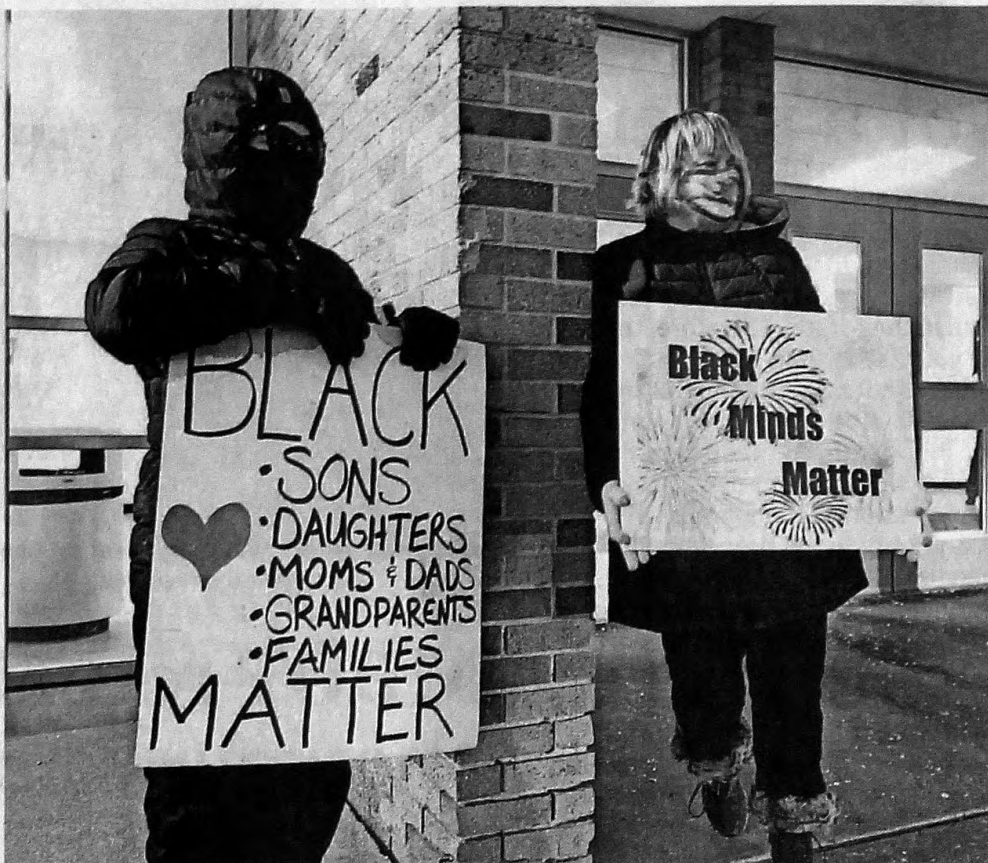 BLACK
•SONS
•DAUGHTERS
•MOMS & DADS
•GRANDPARENTS
•FAMILIES
MATTER
Black
Minds
Matter